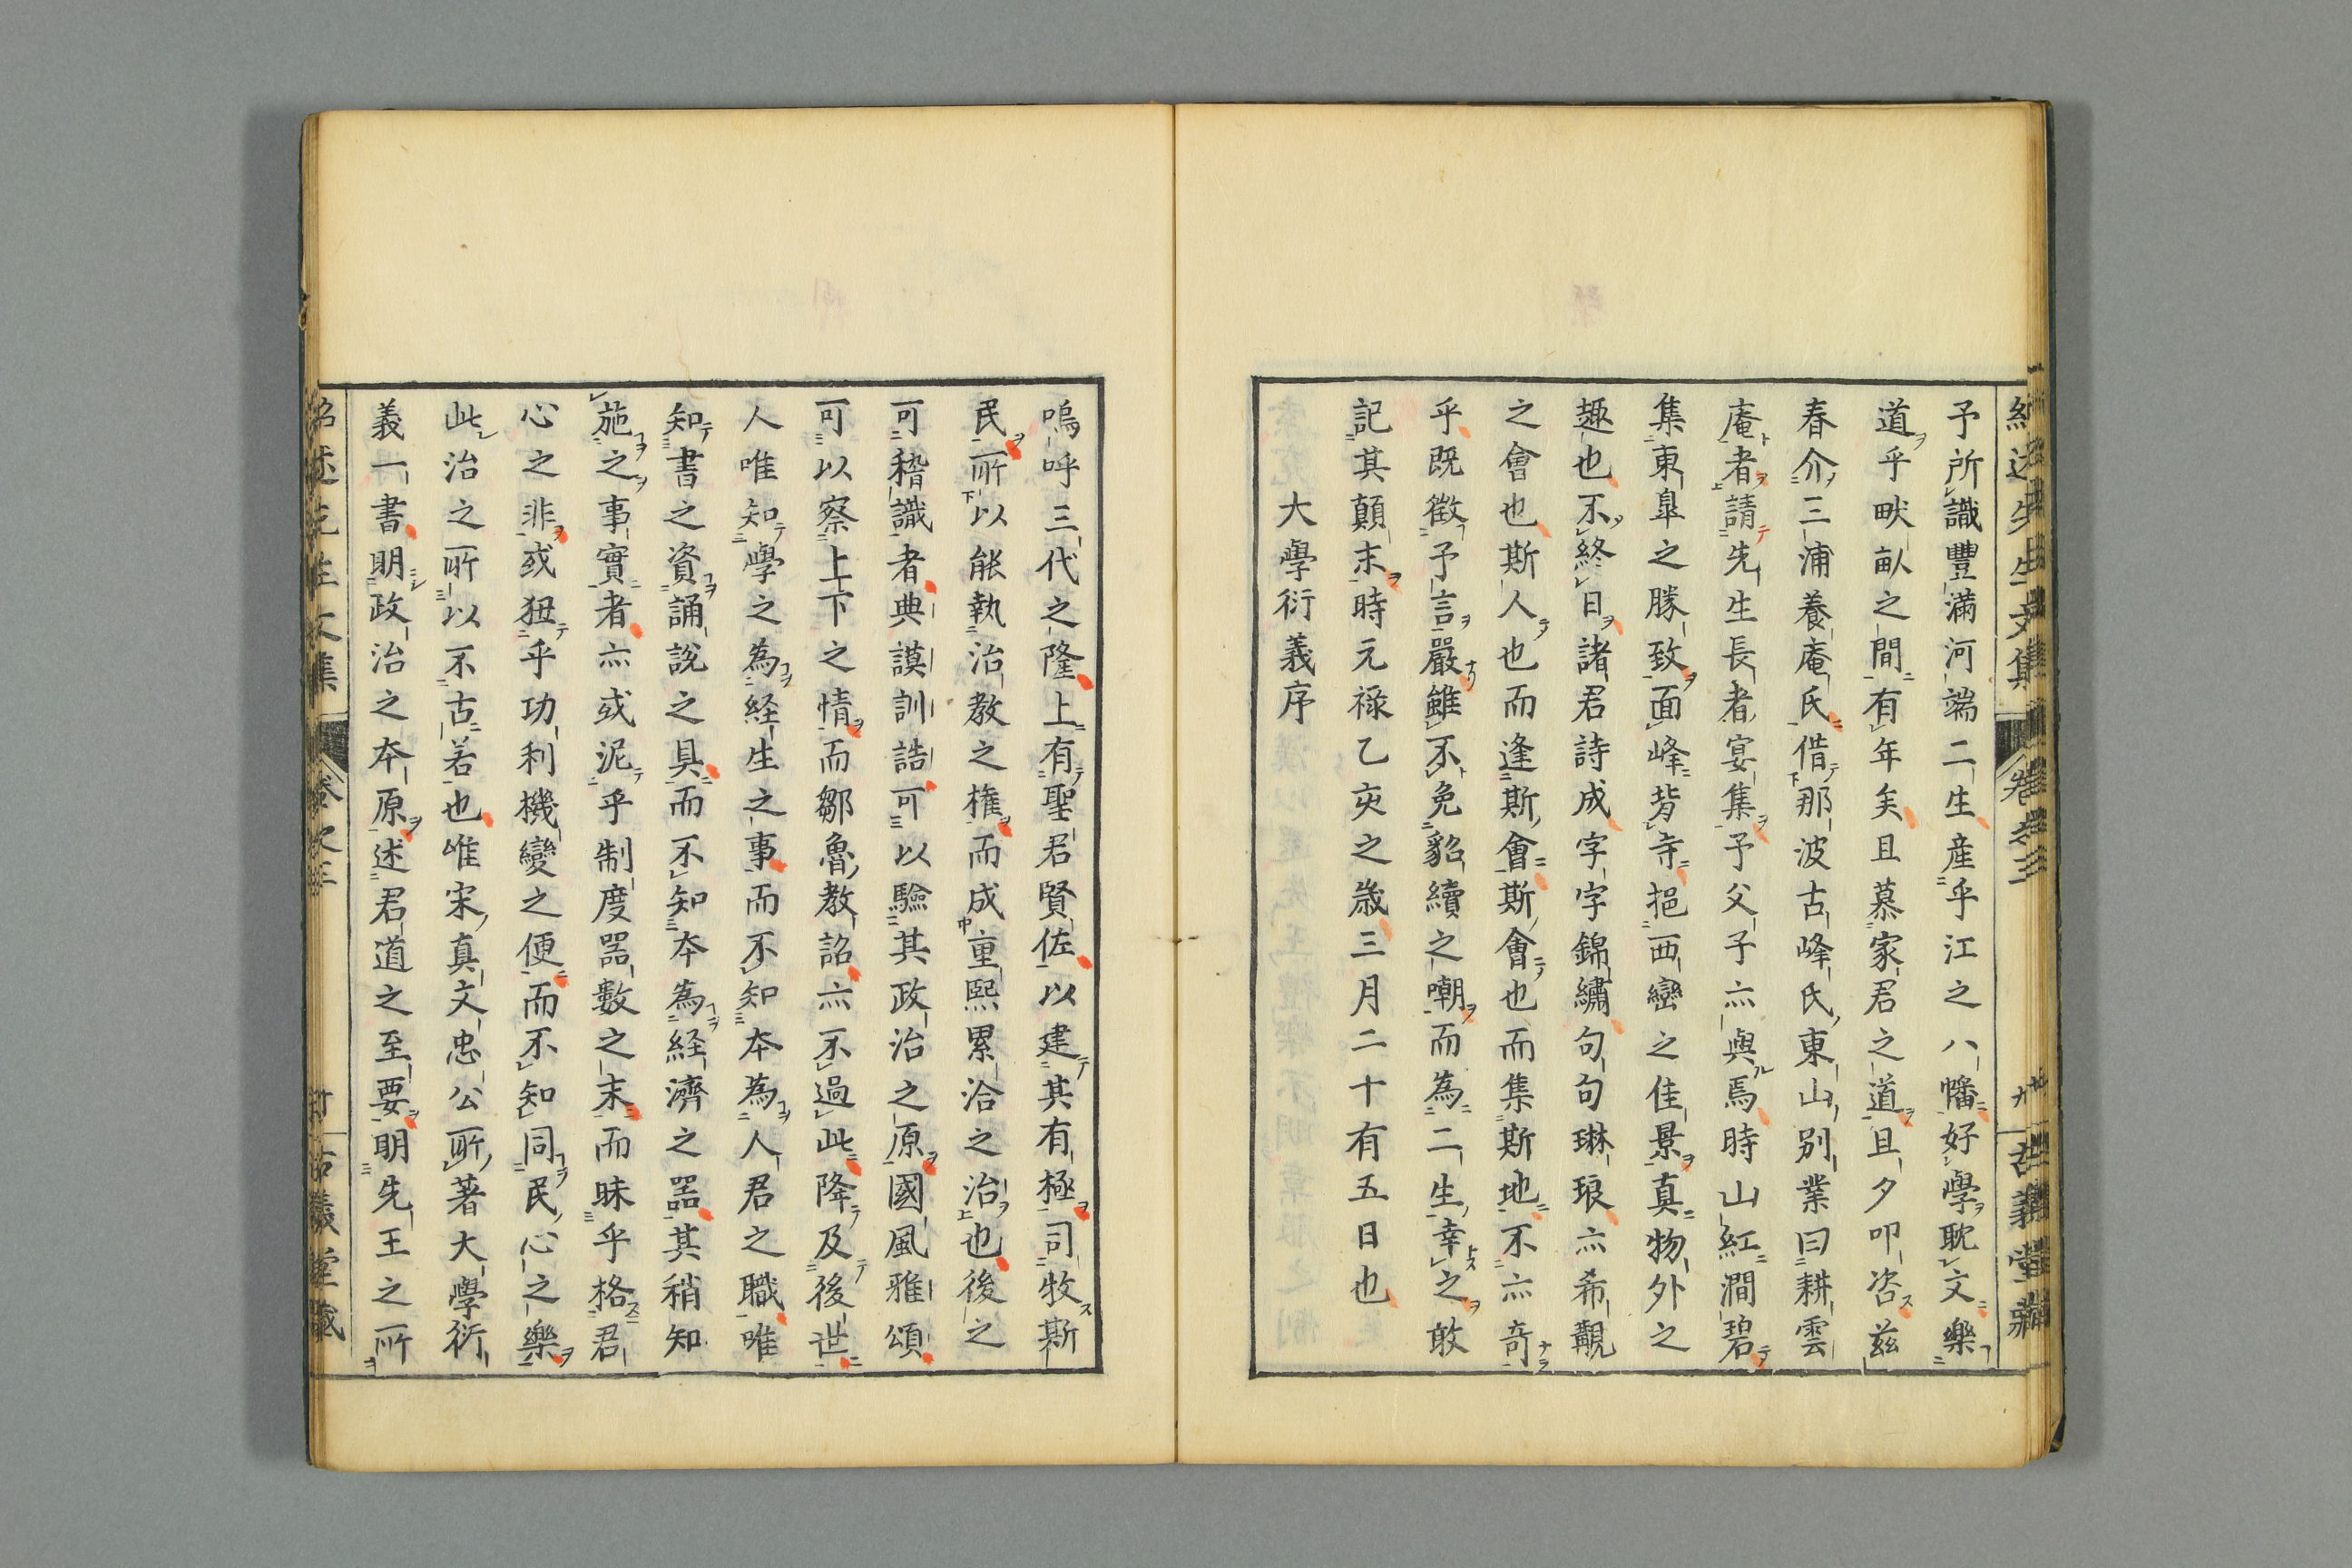 紹述先生文集 卷之三 古義堂藏
予所識豐滿河端二生產乎江之八幡好學耽文樂
道乎畎畝之間有年矣且慕家君之道且夕叩咨茲
春介三浦養庵氏借那波古峰氏東山別業曰耕雲
庵者請先生長者宴集予父子亦與焉時山紅澗碧
集東皐之勝致面峰背寺挹西巒之佳景真物外之
趣也不終日諸君詩成字字錦繡句句琳琅亦希覯
之會也斯人也而逢斯會斯會也而集斯地不亦奇
乎既徵予言嚴雖不免貂續之嘲而為二生幸之敢
記其顛末時元祿乙亥之歲三月二十有五日也
大學衍義序
嗚呼三代之隆上有聖君賢佐以建其有極司牧斯
民所以能執治教之權而成重熙累洽之治也後之
可稽識者典謨訓誥可以驗其政治之原國風雅頌
可以察上下之情而鄒魯教詔亦不過此降及後世
人唯知學之為経生之事而不知本為人君之職唯
知書之資誦說之具而不知本為経濟之器其稍知
施之事實者亦或泥乎制度器數之末而昧乎格君
心之非或狃乎功利機變之便而不知同民心之樂
此治之所以不古若也唯宋真文忠公所著大學衍
義一書明政治之本原述君道之至要明先王之所
紹述先生文集 卷之三 古義堂藏